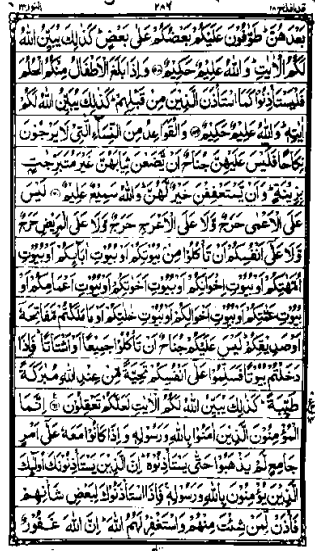 قد افلح ١٨ ٢٨٦ النور ٢٤
بَعْدَهُنَّ طَوّٰفُوْنَ عَلَيْكُمْ بَعْضُكُمْ عَلٰى بَعْضٍ كَذٰلِكَ يُبَيِّنُ اللّٰهُ
لَكُمُ الْاٰيٰتِ وَاللّٰهُ عَلِيْمٌ حَكِيْمٌ ۝ وَاِذَا بَلَغَ الْاَطْفَالُ مِنْكُمُ الْحُلُمَ
فَلْيَسْتَاْذِنُوْا كَمَا اسْتَاْذَنَ الَّذِيْنَ مِنْ قَبْلِهِمْ كَذٰلِكَ يُبَيِّنُ اللّٰهُ لَكُمْ
اٰيٰتِهٖ وَاللّٰهُ عَلِيْمٌ حَكِيْمٌ ۝ وَالْقَوَاعِدُ مِنَ النِّسَآءِ الّٰتِيْ لَا يَرْجُوْنَ
نِكَاحًا فَلَيْسَ عَلَيْهِنَّ جُنَاحٌ اَنْ يَّضَعْنَ ثِيَابَهُنَّ غَيْرَ مُتَبَرِّجٰتٍ
بِزِيْنَةٍ وَاَنْ يَّسْتَعْفِفْنَ خَيْرٌ لَّهُنَّ وَاللّٰهُ سَمِيْعٌ عَلِيْمٌ ۝ لَيْسَ
عَلَى الْاَعْمٰى حَرَجٌ وَّلَا عَلَى الْاَعْرَجِ حَرَجٌ وَّلَا عَلَى الْمَرِيْضِ حَرَجٌ
وَّلَا عَلٰى اَنْفُسِكُمْ اَنْ تَاْكُلُوْا مِنْ بُيُوْتِكُمْ اَوْ بُيُوْتِ اٰبَآئِكُمْ اَوْ بُيُوْتِ
اُمَّهٰتِكُمْ اَوْ بُيُوْتِ اِخْوَانِكُمْ اَوْ بُيُوْتِ اَخَوٰتِكُمْ اَوْ بُيُوْتِ اَعْمَامِكُمْ اَوْ
بُيُوْتِ عَمّٰتِكُمْ اَوْ بُيُوْتِ اَخْوَالِكُمْ اَوْ بُيُوْتِ خٰلٰتِكُمْ اَوْ مَا مَلَكْتُمْ مَّفَاتِحَهٗٓ
اَوْ صَدِيْقِكُمْ لَيْسَ عَلَيْكُمْ جُنَاحٌ اَنْ تَاْكُلُوْا جَمِيْعًا اَوْ اَشْتَاتًا فَاِذَا
دَخَلْتُمْ بُيُوْتًا فَسَلِّمُوْا عَلٰٓى اَنْفُسِكُمْ تَحِيَّةً مِّنْ عِنْدِ اللّٰهِ مُبٰرَكَةً
طَيِّبَةً كَذٰلِكَ يُبَيِّنُ اللّٰهُ لَكُمُ الْاٰيٰتِ لَعَلَّكُمْ تَعْقِلُوْنَ ۝ اِنَّمَا
الْمُؤْمِنُوْنَ الَّذِيْنَ اٰمَنُوْا بِاللّٰهِ وَرَسُوْلِهٖ وَاِذَا كَانُوْا مَعَهٗ عَلٰٓى اَمْرٍ
جَامِعٍ لَّمْ يَذْهَبُوْا حَتّٰى يَسْتَاْذِنُوْهُ اِنَّ الَّذِيْنَ يَسْتَاْذِنُوْنَكَ اُولٰٓئِكَ
الَّذِيْنَ يُؤْمِنُوْنَ بِاللّٰهِ وَرَسُوْلِهٖ فَاِذَا اسْتَاْذَنُوْكَ لِبَعْضِ شَاْنِهِمْ
فَاْذَنْ لِّمَنْ شِئْتَ مِنْهُمْ وَاسْتَغْفِرْ لَهُمُ اللّٰهَ اِنَّ اللّٰهَ غَفُوْرٌ